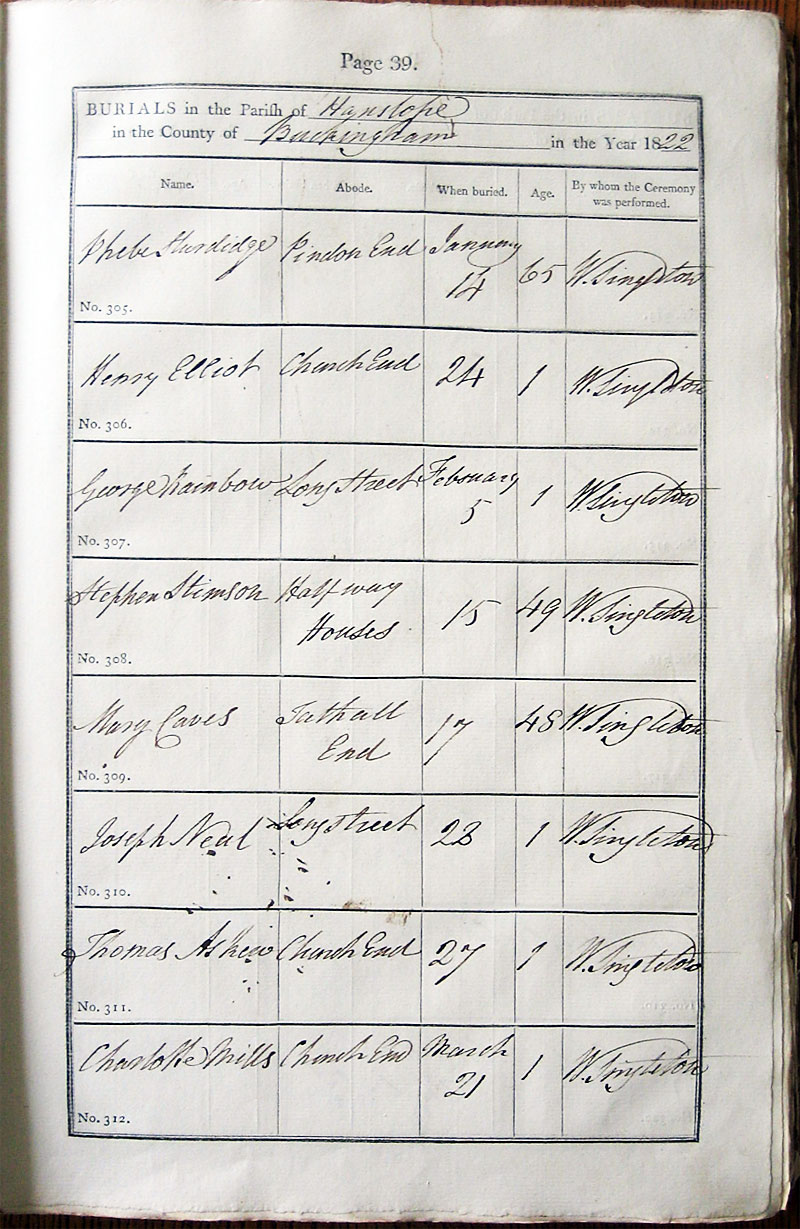 Page 39.
BURIALS in the Parish of Hanslope
in the County of Buckingham in the Year 1822
Name. Abode. When buried. Age. By whom the Ceremony was performed.
Phebe Sturdidge Pindon End January 14 65 W. Singleton
No. 305.
Henry Elliot Church End 24 1 W. Singleton
No. 306.
George Rainbow Long Street February 5 1 W. Singleton
No. 307.
Stephen Stimson Half way Houses 15 49 W. Singleton
No. 308.
Mary Caves Tathall End 17 48 W. Singleton
No. 309.
Joseph Neal Long Street 1 W. Singleton
No. 310.
Thomas Askew Church End 27 1 W. Singleton
No. 311.
Charlotte Mills Church End March 21 1 W. Singleton
No. 312.